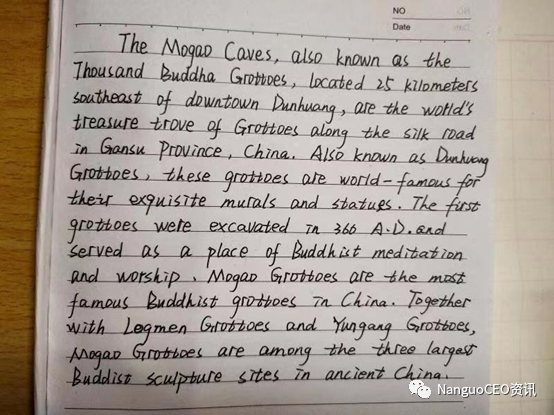 NO
Date
The Mogao Caves, also known as the
Thousand Buddha Grottoes, located 25 kilometers
southeast of downtown Dunhuang, are the world's
treasure trove of Grottoes along the silk road
in Gansu Province, China. Also known as Dunhuang
Grottoes, these grottoes are world-famous for
their exquisite murals and statues. The first
grottoes were excavated in 366 A.D. and
served as a place of Buddhist meditation
and worship. Mogao Grottoes are the most
famous Buddhist grottoes in China. Together
with Legmen Grottoes and Yungang Grottoes,
Mogao Grottoes are among the three largest
Buddist sculpture sites in ancient China.
NanguoCEO资讯